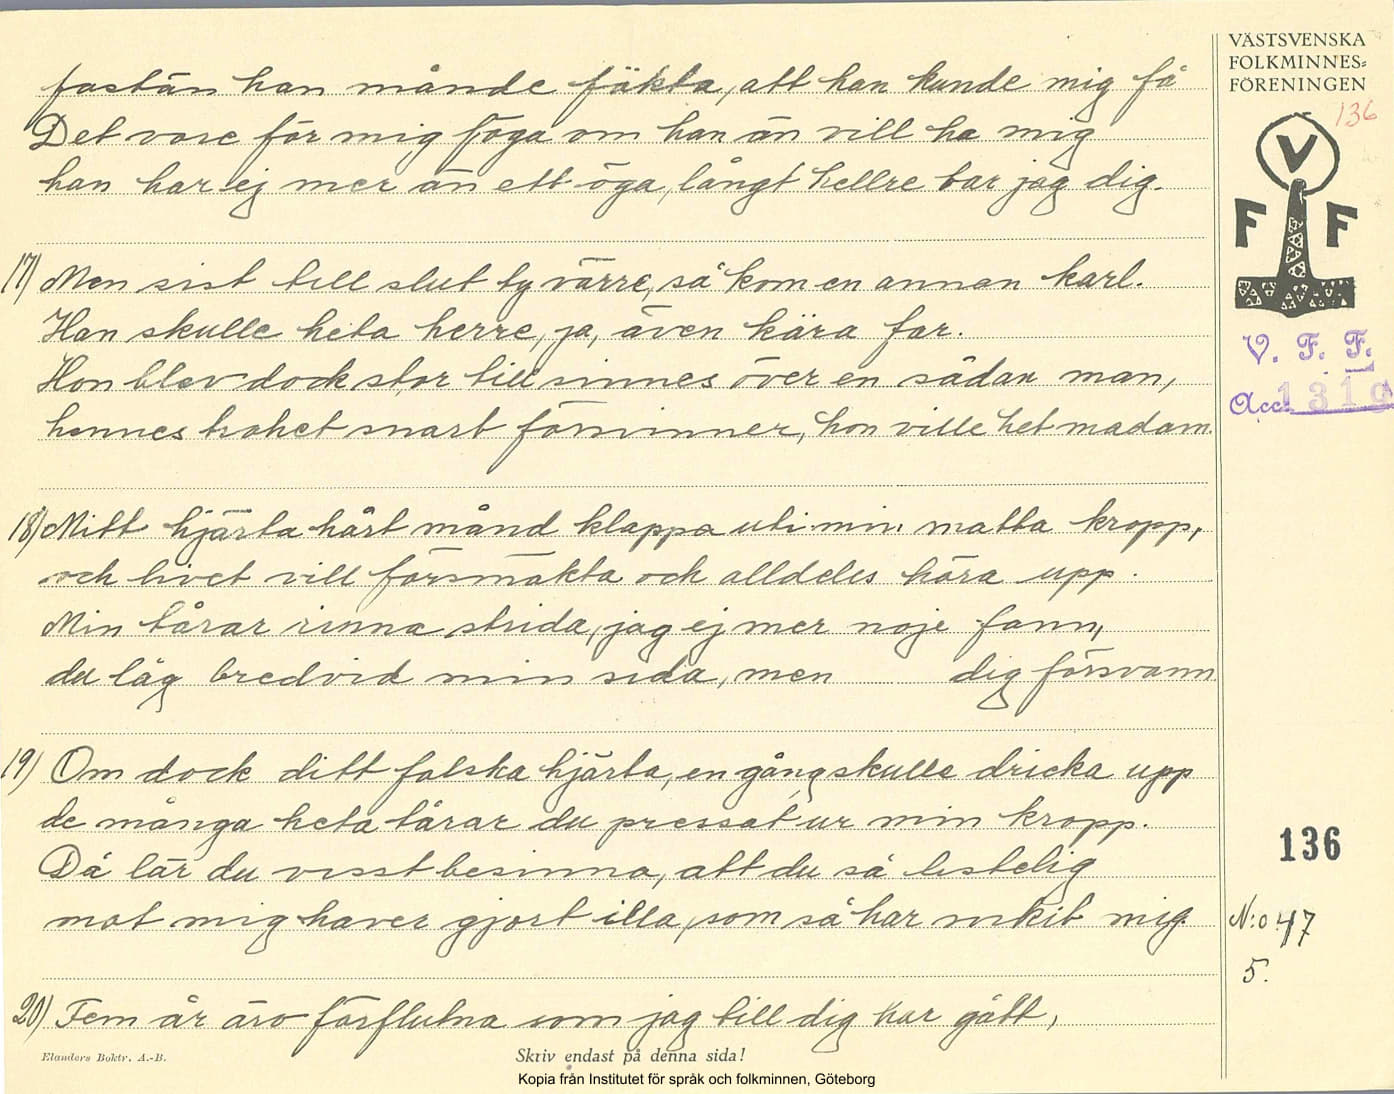 VÄSTSVENSKA
FOLKMINNES-
FÖRENINGEN
136
V
F F
V. F. F.
Acc. 1319
fastän han månde fäkta, att han kunde mig få
Det vore för mig föga om han än vill ha mig
han har ej mer än ett öga, långt hellre tar jag dig.
17) Men sist till slut ty värre, så kom en annan karl.
Han skulle heta herre, ja, även kära far.
Hon blev dock stor till sinnes över en sådan man,
hennes trohet snart försvinner, hon ville het madam.
18) Mitt hjärta hårt månd klappa uti min matta kropp,
och livet vill försmäkta och alldeles höra upp.
Min tårar rinna strida, jag ej mer nöje fann,
du låg bredvid min sida, men dig försvann
19) Om dock ditt falska hjärta, en gång skulle dricka upp
de många heta tårar du pressat ur min kropp.
Då lär du visst besinna, att du så listelig
mot mig haver gjort illa, som så har svikit mig.
20) Fem år äro förflutna som jag till dig har gått,
136
N:o 47
5.
Elanders Boktr. A.-B.
Skriv endast på denna sida!
Kopia från Institutet för språk och folkminnen, Göteborg